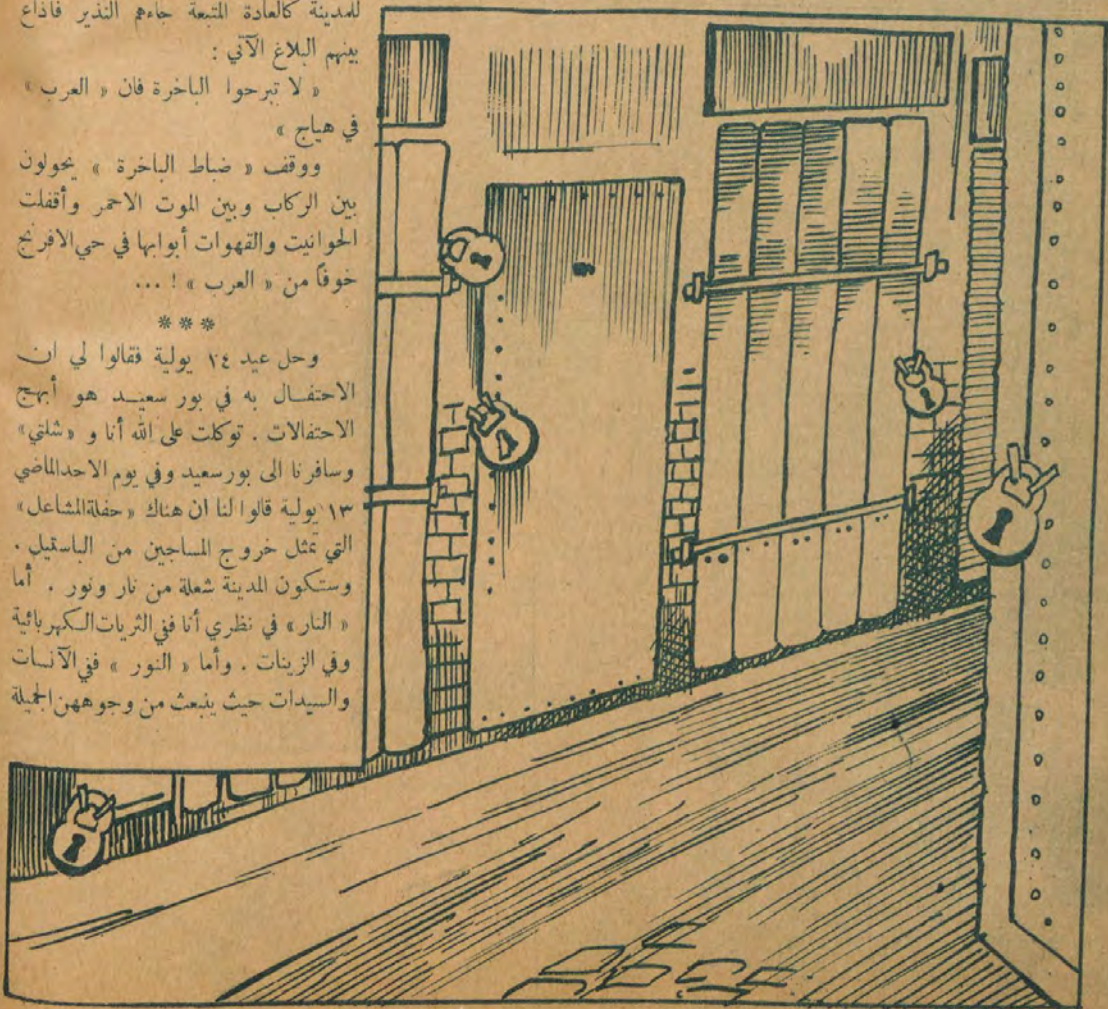 للمدينة كالعادة المتبعة جاءهم النذير فاذاع
بينهم البلاغ الآتي :
« لا تبرحوا الباخرة فان « العرب »
في هياج »
ووقف « ضباط الباخرة » يحولون
بين الركاب وبين الموت الاحمر وأقفلت
الحوانيت والقهوات أبوابها في حي الافرنج
خوفاً من « العرب » ! ...
***
وحل عيد ١٤ يولية فقالوا لي ان
الاحتفال به في بور سعيد هو أبهج
الاحتفالات . توكلت على الله أنا و « شلتي »
وسافرنا الى بورسعيد وفي يوم الاحد الماضي
١٣ يولية قالوا لنا ان هناك « حفلة المشاعل »
التي تمثل خروج المساجين من الباستيل .
وستكون المدينة شعلة من نار ونور . أما
« النار » في نظري أنا ففي الثريات الكهربائية
وفي الزينات . وأما « النور » ففي الآنسات
والسيدات حيث ينبعث من وجوههن الجميلة